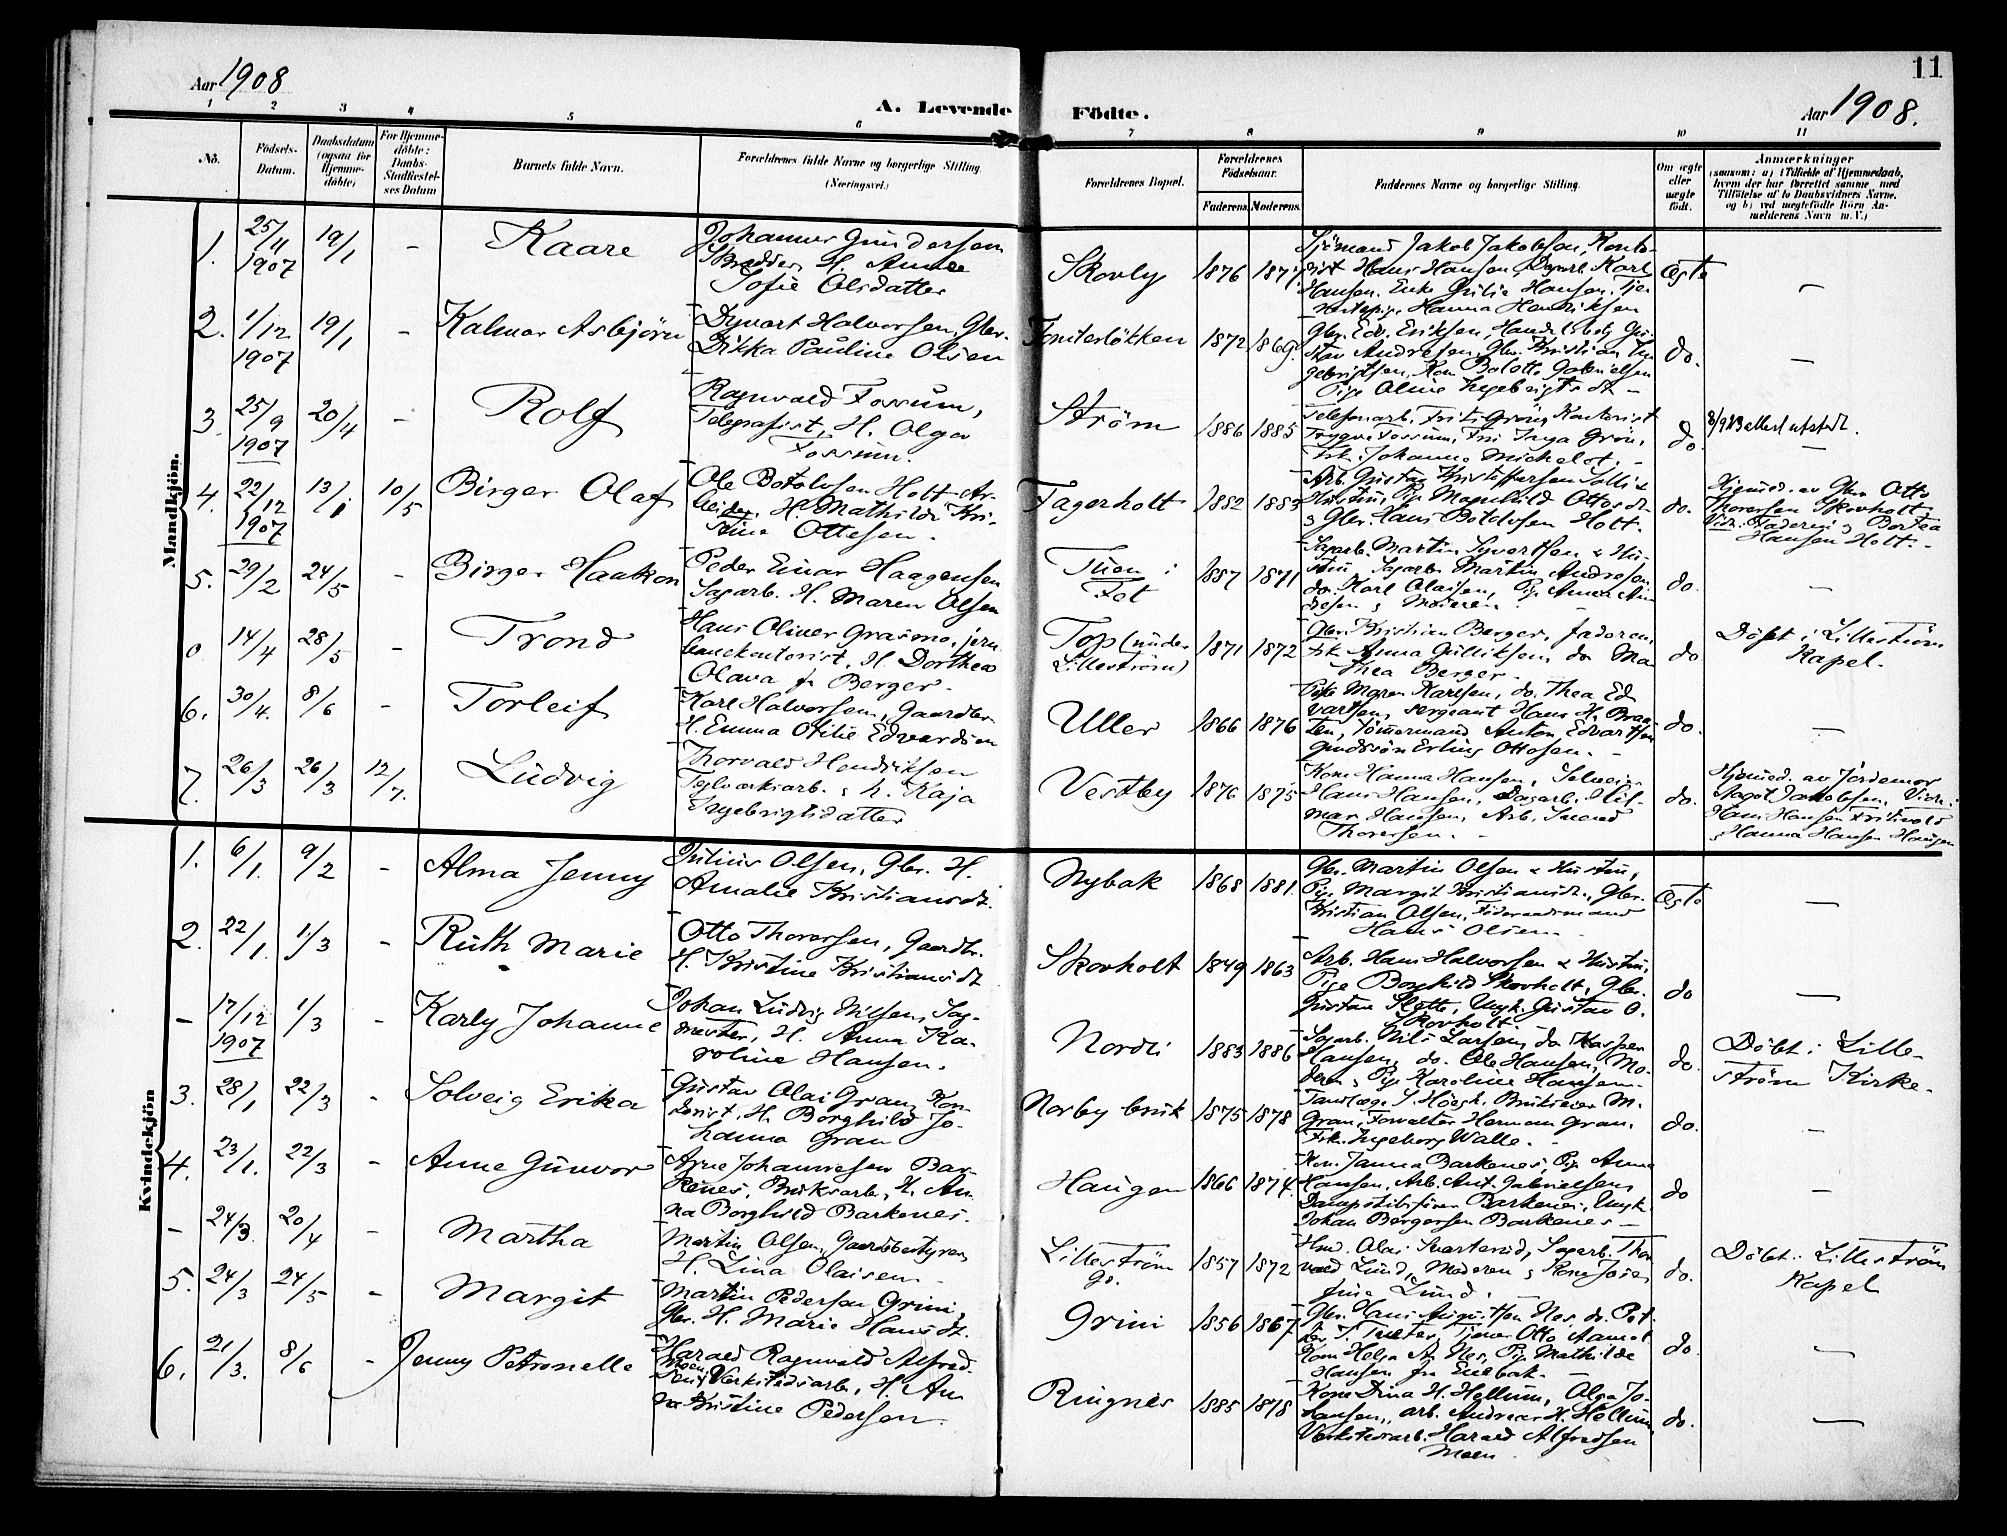 11
Aar 1908
A. Levende
Födte.
Aar 1908.
1 2 3 4 5 6 7 8 9 10 11
No.
Födsels-
Datum.
Daabsdatum
(ogsaa for
Hjemme-
döbte)
For Hjemme-
döbte:
Daabs-
Stadfæstel-
ses Datum
Barnets fulde Navn.
Forældrenes fulde Navne og borgerlige Stilling
(Næringsvei.)
Forældrenes Bopæl.
Forældrenes
Födselsaar.
Faderens.
Moderens.
Faddernes Navne og borgerlige Stilling.
Om ægte
eller
uægte
födt.
Anmærkninger
(saasom: a) i Tilfælde af Hjemmedaab,
hvem der har forrettet samme med
Tilföielse af to Daabsvidners Navne,
og b) ved uægtefödte Börn An-
melderens Navn m. V.)
Mandkjön.
1. 25/11 1907 19/1 - Kaare
Johannes Gundersen
Sofie Olsdatter
Skovly 1876 1877
Sjömand Jakob Jakobsen, Konto-
rist Hans Hansen, Dagarb. Karl
Hansen. Enke Julie Hansen. Tje-
nestepige Hanna Henriksen
Ægte
—
2. 1/12 1907 19/1 - Kalmar Asbjörn
Dyvart Halvorsen, Gbr.
Dikka Pauline Olsen
Tomterlökken 1872 1869.
Gbr. Edv. Eriksen, Handelsbetj. Gu-
stav Andresen, Gbr. Kristian In-
gebrigtsen, Kone Bolette Gabrielsen
Pige Oline Ingebrigtsdt —
do.
—
3. 25/9 1907 20/4 - Rolf
Ragnvald Fossum,
Telegrafist, H. Olga
Fossum.
Ström 1886 1885
Telefonarb. Fritz Grön, Kontorist
Trygve Fossum, Fru Inga Grön,
Frk. Johanne Michelet. -
do
—
4. 22/12 1907 13/1 10/5 Birger Olaf
Ole Botolvsen Holt Ar-
beider. H. Mathilde Kri-
stine Ottesen.
Fagerholt 1882 1883
Arb. Gustav Kristoffersen Sollie
Hustru, Pig. Magnhild Ottosdt.
& Gbr. Hans Botolvsen Holt.
do.
Hjemmed. av Gbr. Otto
Thoresen Skovholt
Vidn. Faderen & Bertea
Hansen Holt.
5. 29/2 24/5 - Birger Haakon
Peder Einar Haagensen
Sagarb. H. Maren Olsen
Tuen i
Fet
1887 1871
Sagarb. Martin Syvertsen & Hu-
stru, Sagarb. Martin Andresen
do. Karl Olaisen, Pig. Anna An-
dresen & Moderen.
do.
—
0 14/4 28/5 - Trond
Hans Oliver Grasmo, jern-
banekontorist. H. Dorthea
Olava f. Berger.
Top (under
Lilleström)
1871 1872
Gbr. Kristian Berger, faderen,
Frk. Anna Gulliksen, do Ma-
thea Berger.
do
Döbt i Lilleström
Kapel.
6. 30/4. 8/6 - Torleif
Karl Halvorsen, Gaardbr.
H. Emma Otilie Edvardsen
Uller 1866 1876
Pige Maren Karlsen, do. Thea Ed-
vartsen, Sergeant Hans H. Braa-
ten, Tömmermand Anton Edvartsen
Gaardssön Erling Ottosen. -
do.
—
7. 26/3 26/3 12/7. Ludvig
Thorvald Hendriksen
Teglverksarb. & H. Kaja
Ingebrigtsdatter
Vestby 1876 1875
Kone Hanna Hansen, Selveier
Hans Hansen, Dagarb. Hil-
mar Hansen, Arb. Svend
Thoresen. -
do.
Hjemmed. av Jordemor
Aagot Jakobsen, Vidn.:
Hans Hansen Fritsvold
& Hanna Hansen Haugen
Kvindekjön
1. 6/1. 9/2 - Alma Jenny
Julius Olsen, Gbr. H.
Amalie Kristiansdt.
Nybak 1868 1881.
Gbr. Martin Olsen & Hustru,
Pige Margit Kristiansdt., Gbr.
Kristian Olsen, Föderaadsmand
Hans Olsen.
Ægte
—
2. 22/1. 1/3 - Ruth Marie
Otto Thoresen, Gaardbr.
H. Kristine Kristiansdt
Skovholt 1849 1863
Arb. Hans Halvorsen & Hustru,
Pige Borghild Skovholt, Gbr.
Gustav Slette, Ungk. Gustav O.
Skovholt.
do
—
- 17/12 1907 1/3 - Karly Johanne
Johan Ludvig Nilsen, Sag-
mester, H. Anna Ka-
roline Hansen.
Nordli 1883 1886
Sagarb. Nils Larsen, do Kasper
Hansen, do. Ole Hansen, Mo-
deren & Pige Karoline Hansen.
do.
Döbt i Lille-
ström Kirke.
3. 28/1 22/3 - Solveig Erika
Gustav Olai Gran, Kon-
torist, H. Borghild Jo-
hanna Gran
Norby bruk 1875 1878
Tandlæge S. Höegh. Brukseier M.
Gran, Forvalter Herman Gran,
Frk. Ingeborg Walle. -
do.
—
4. 23/1. 22/3 - Anne Gunvor
Arne Johannesen Bar-
kenes, Bruksarb., H. An-
na Borghild Barkenes.
Haugen 1866 1874.
Kone Janna Barkenes, Pig. Anna
Hansen, Arb. Ant. Gabrielsen,
Barkenes, Ungk.
Johan Bergersen Barkenes —
do
—
- 24/3. 20/4 - Martha
Martin Olsen, Gaardbestyrer,
H. Lina Olaisen
Lilleström
Gd.
1857 1872
Hmd. Olai Svarterud, Sagarb. Thor-
vald Lund, Moderen & Kone Jose-
fine Lund.
do.
Döbt i Lilleström
Kapel
5. 24/3 24/5 - Margit
Martin Pedersen Grini,
Gbr. H. Marie Hansdt.
Grini 1856 1867
Gbr. Hans Augustsen Nes, do. Pet-
ter T. Tueter, Tjener Otto Aamot
Kone Helga A. Nes, Pig. Mathilde
Hansen fra Enebak. -
do.
—
6. 21/3. 8/6 - Jenny Petronelle
Harald Ragnvald Alfred-
sen Moen Verkstedsarb., H. An-
na Kristine Pedersen.
Ringnes 1885 1878
Kone Dina H. Hellum, Olga Jo-
hansen, arb. Andreas H. Hellum,
Verkstedsarb. Harald Alfredsen
Moen
do.
—